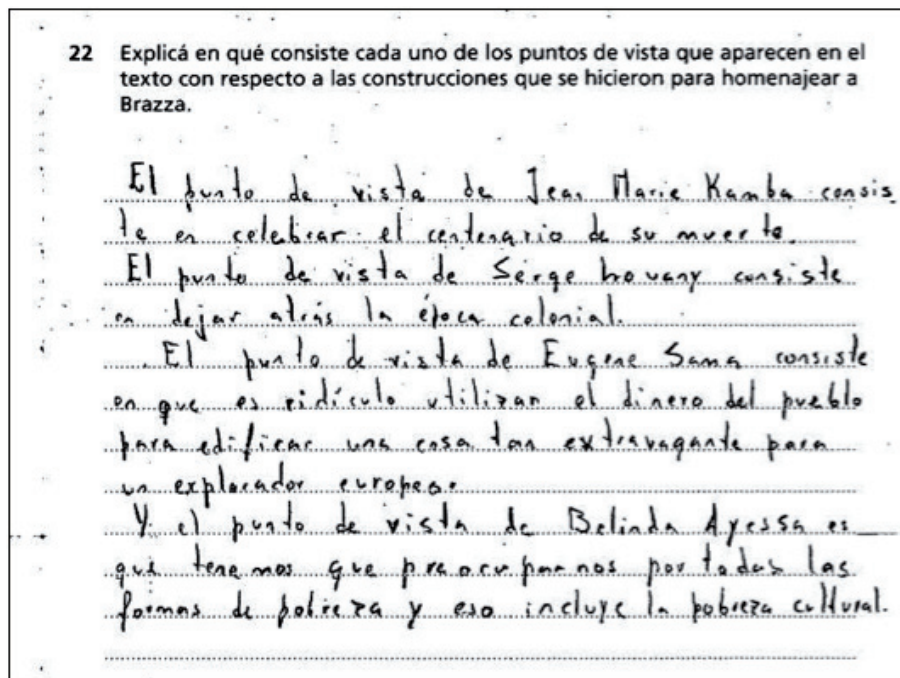 22 Explicá en qué consiste cada uno de los puntos de vista que aparecen en el
texto con respecto a las construcciones que se hicieron para homenajear a
Brazza.
El punto de vista de Jean Marie Kamba consis
te en celebrar el centenario de su muerte.
El punto de vista de Serge Lovany consiste
en dejar atrás la época colonial.
El punto de vista de Eugene Sama consiste
en que es ridículo utilizar el dinero del pueblo
para edificar una cosa tan extravagante para
un explorador europeo.
Y el punto de vista de Belinda Ayessa es
que tenemos que preocuparnos por todas las
formas de pobreza y eso incluye la pobreza cultural.